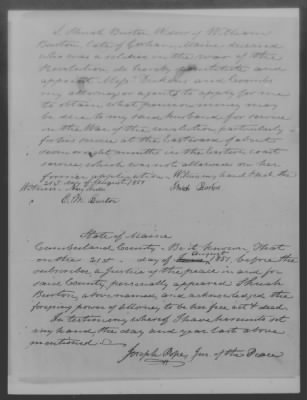 I Thirah Burton Widow of William
Burton late of Gorham Maine deceased
who was a soldier in the war of the
Revolution do hereby constitute and
appoint Messrs and
my attorneys or agents to apply for me
to obtain what pension money may
be due to my said husband for service
in the War of the revolution particularly
for his service at the Eastward of about
months in the Eastern coast
service which was not allowed on her
former application. Witness my hand this the
21st day of August 1851
Witness
Burton
E. M. Burton
State of Maine
Cumberland County - Be it known, That
on the 21st day of August 1851, before the
subscriber a Justice of the peace in and for
said County, personally appeared
Burton, above named and acknowledged the
foregoing power of attorney to be her free act & deed.
In testimony whereof I have hereunto set
my hand, the day and year last above
mentioned.
Joseph Pope, Jus. of the Peace